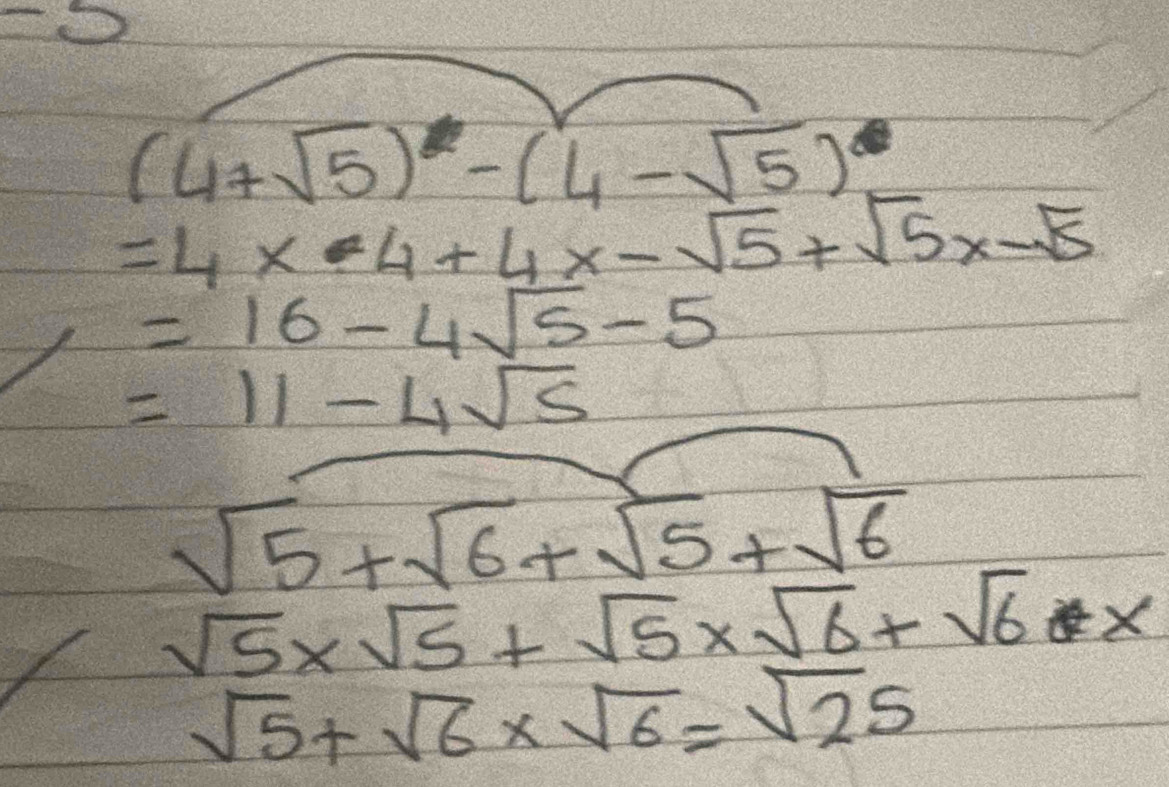 -5
(4+√5) -(4-√5)
=4 x -4+4x-√5+√5x-√5
= 16-4√5-5
= 11-4√5
√5+√6+√5+√6
√5x√5+√5x√6+√6 x
√5+√6x√6=√25